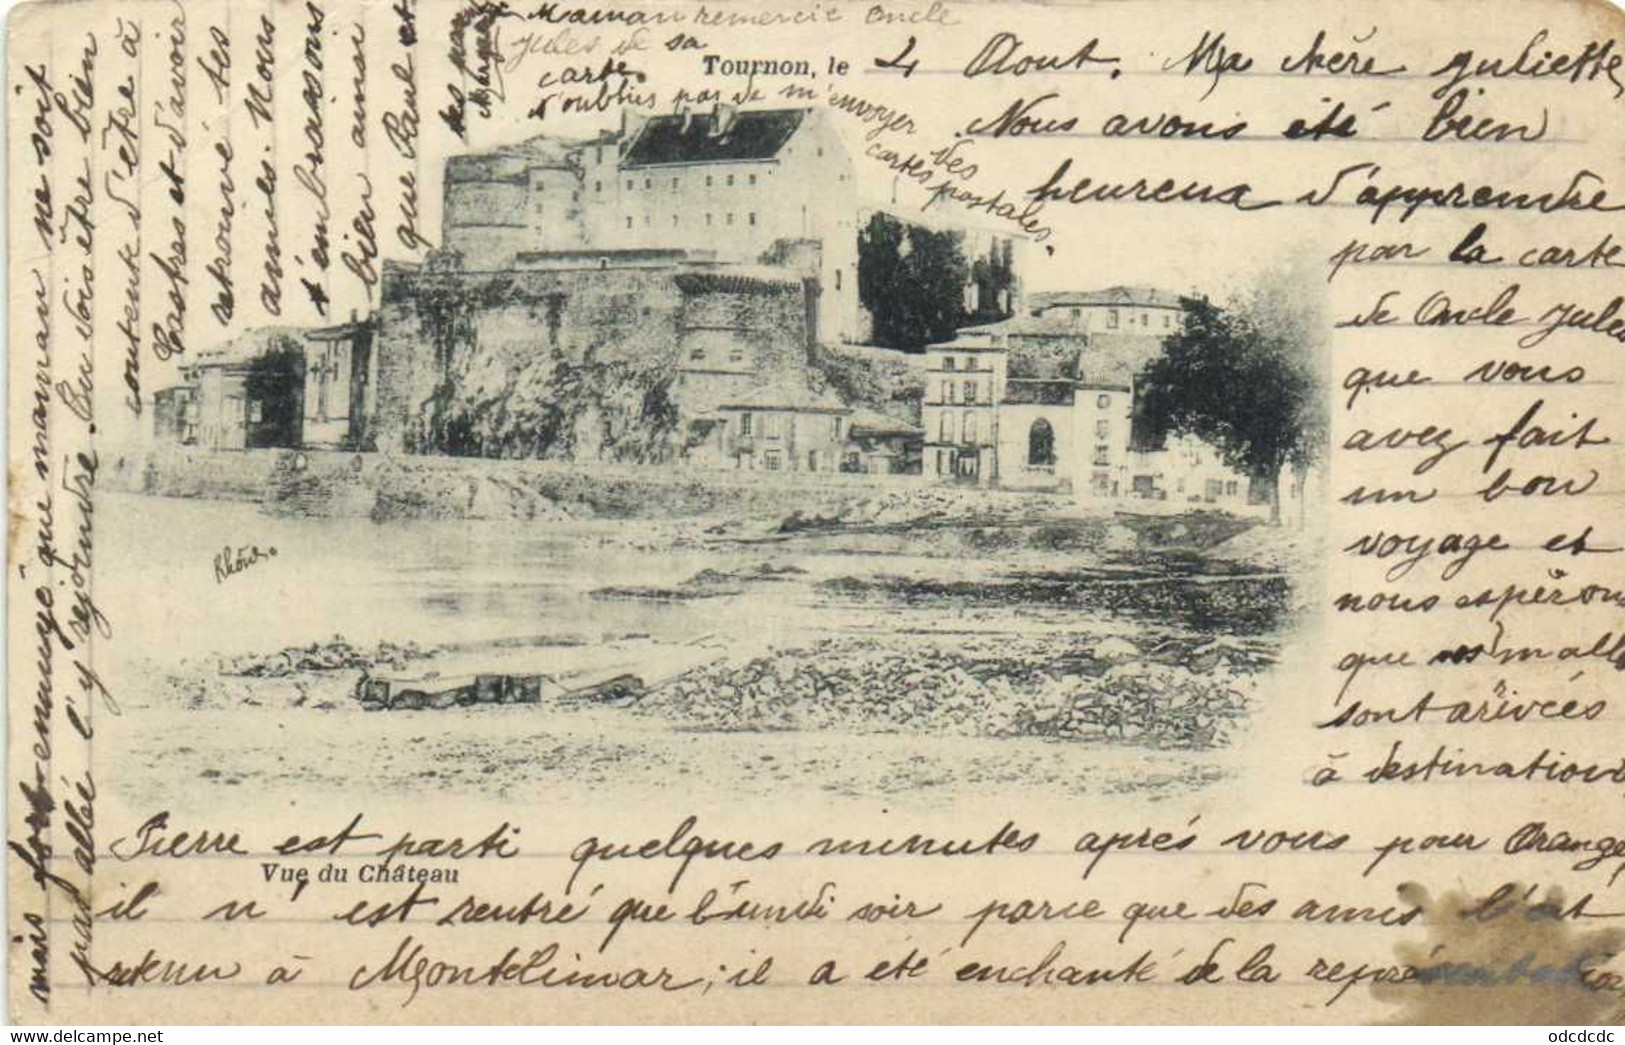 Tournon, le 4 Aout. Ma chère Juliette,
Nous avons été bien
heureux d'apprendre
par la carte
de Oncle Jules
que vous
avez fait
un bon
voyage et
nous espérons
que malle
sont arivées
à destination
Pierre est parti quelques minutes aprés vous pour Orange,
Vue du Château
il n'est rentré que lundi soir parce que des amis l'ont
retenu à Montélimar; il a été enchanté de la représentation
mais fort ennuyé que maman ne soit
pas allée l'y rejoindre. Tu dois être bien
contente d'être à
Castres et d'avoir
retrouvé tes
amies. Nous
t'embrassons
bien ainsi
que Paul et
Maman remercie Oncle
Jules de sa
carte.
N'oublies pas de m'envoyer
des
cartes postales.
Rhône.
odcdcdc